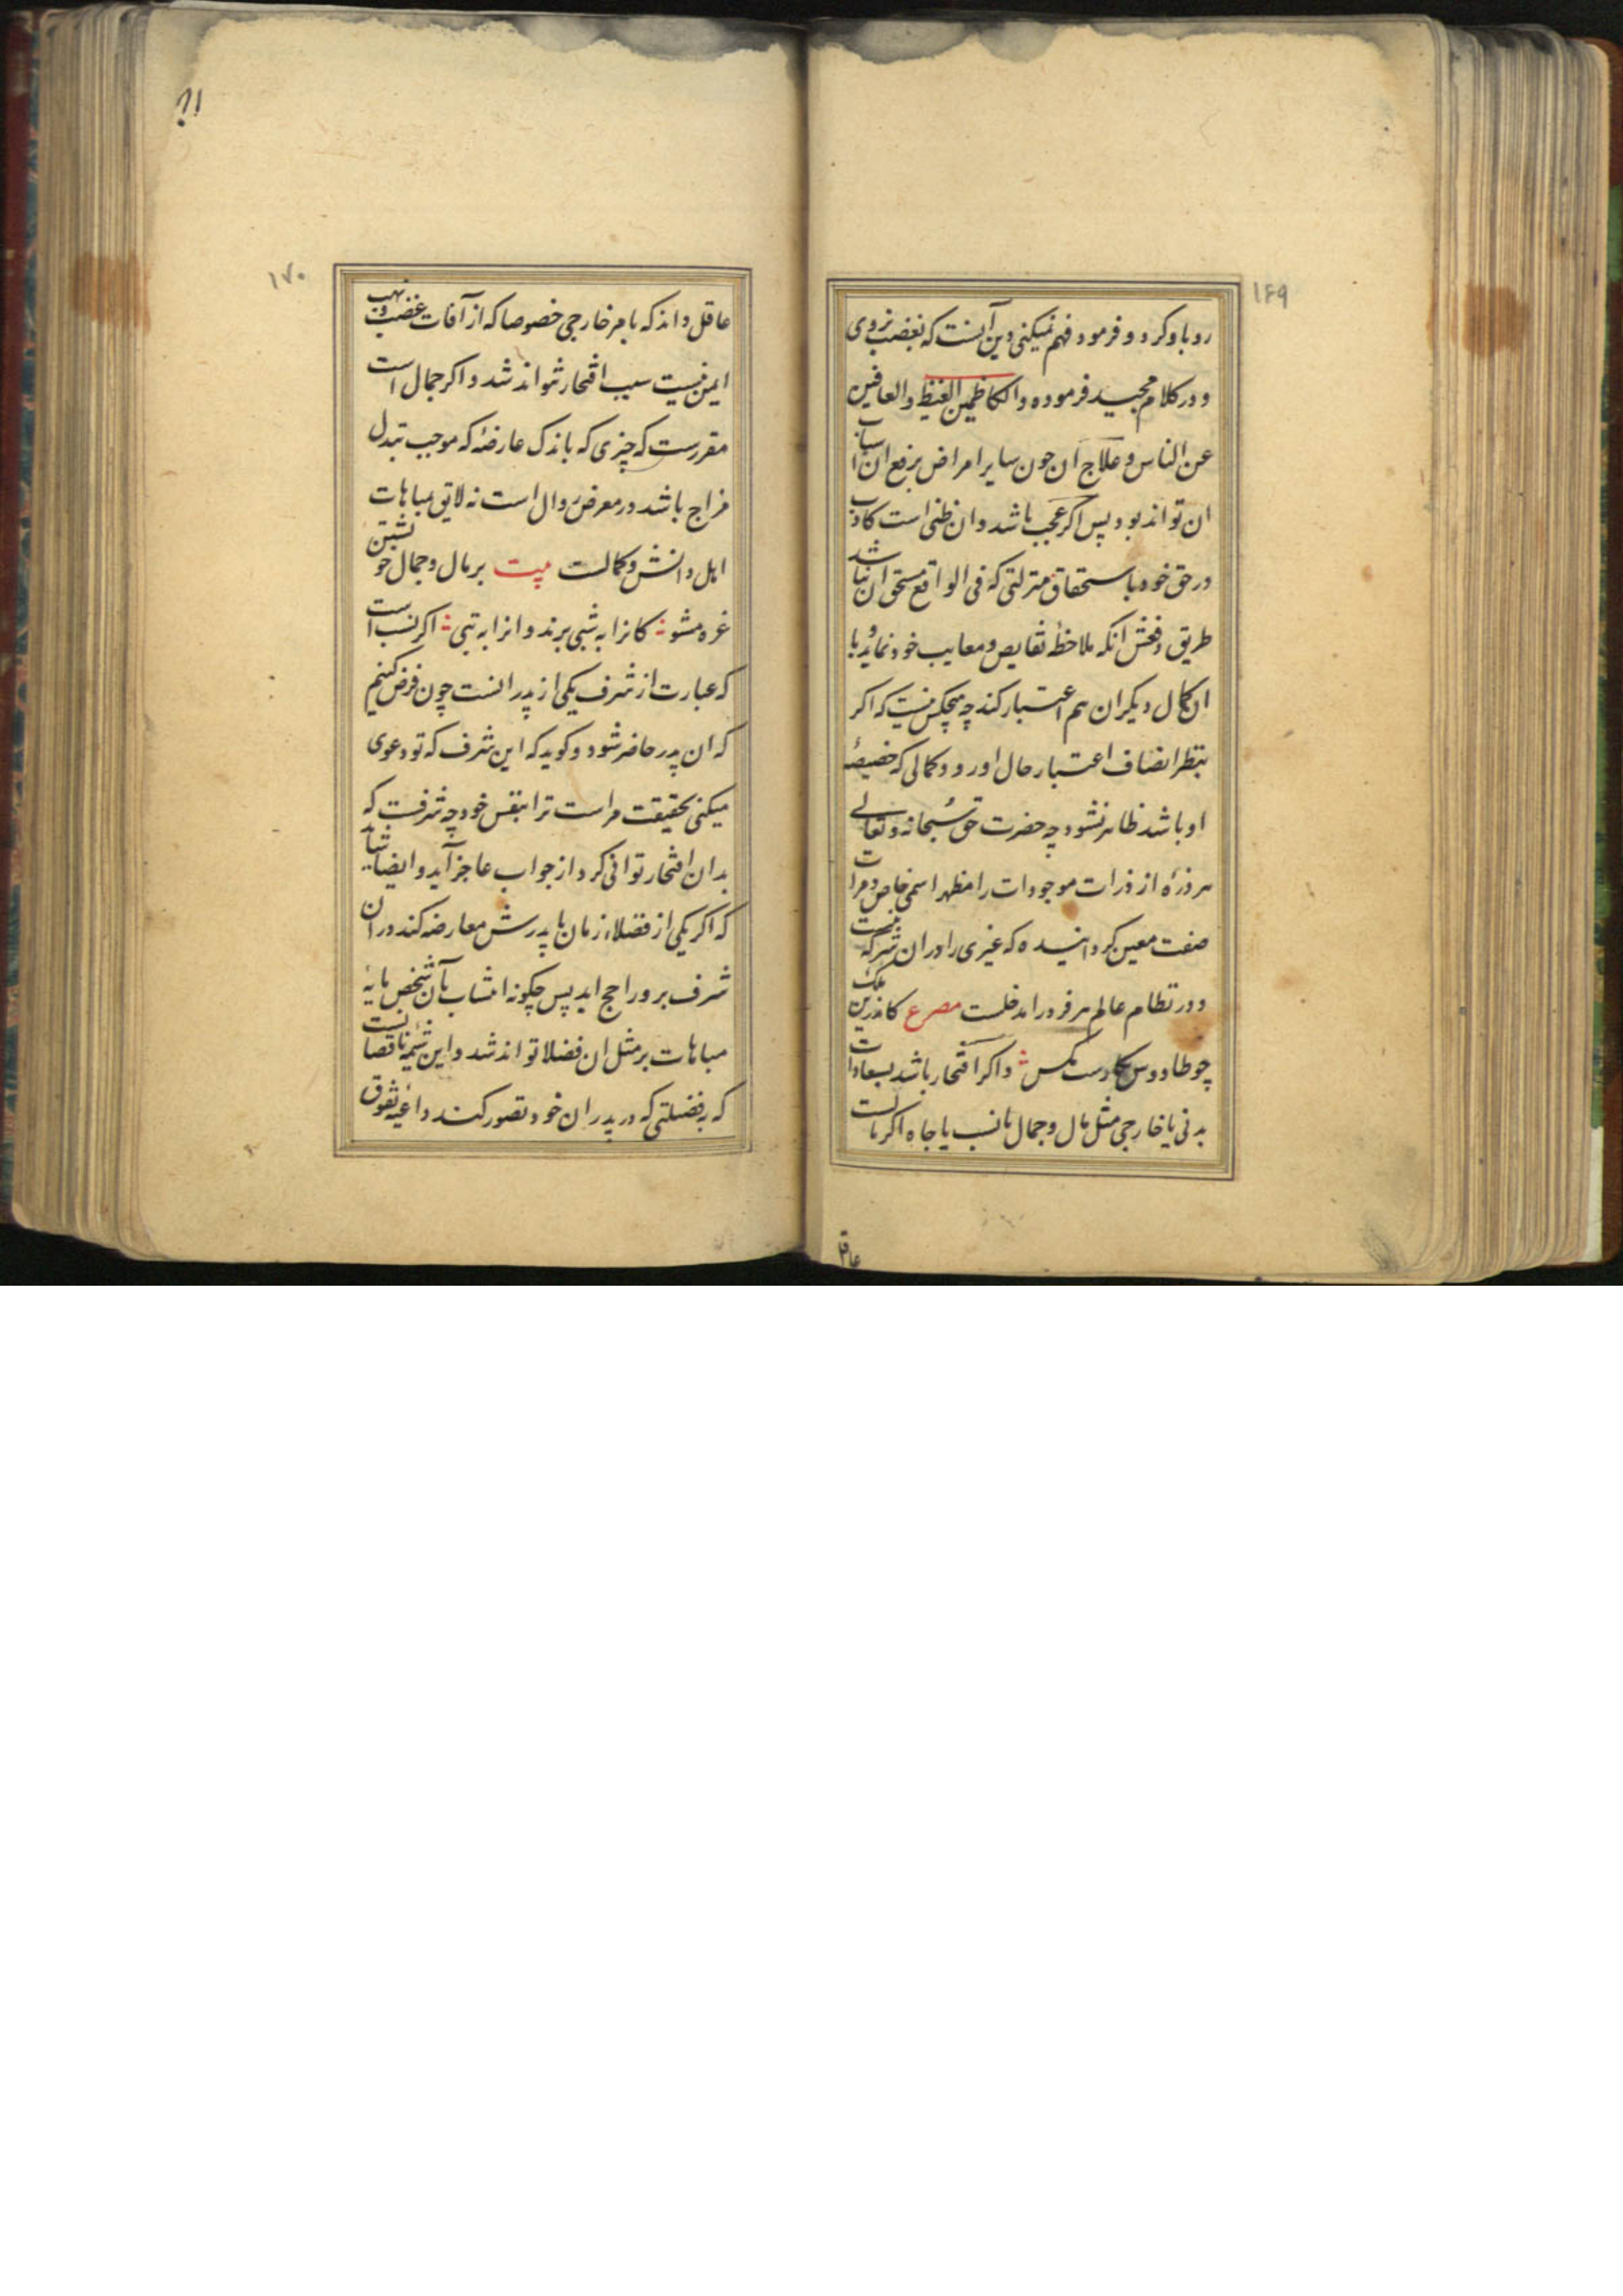 ۱۶۹
رو باو کرد و فرمود فهم نمیکنی دین آنست که بغضب نروی
و در کلام مجید فرموده والکاظمین الغیظ والعافین
عن الناس و علاج ان جون سایر امراض برفع اسباب
ان تواند بود پس اکر عجب باشد وان ظنی است کاذب
در حق خود باستحقاق منزلتی که فی الواقع مستحق ان نباشد
طریق دفعش انکه ملاحظهٔ نقایص و معایب خود نماید و با
ان کمال دیکران هم اعتبار کند چه هیچکس نیست که اکر
بنظر انصاف اعتبار حال او رود کمالی که خصیصهٔ
او باشد ظاهر نشود چه حضرت حق سبحانه و تعالی
هر ذرهٔ از ذرات موجودات را مظهر اسمی خاص و مرات
صفت معین کردانیده که غیری را دران شرکت نیست
و در نظام عالم هر فرد را مدخلست مصرع کاندرین ملک
چو طاووس بکارست مکس و اکر افتخار باشد بسعادات
بدنی یا خارجی مثل مال و جمال یا نسب یا جاه اکر مالست
عاقل
۱۷۰
عاقل داند که بامر خارجی خصوصا که از آفات غضب و نهب
ایمن نیست سبب افتخار نتواند شد و اکر جمال است
مقررست که چیزی که باندک عارضهٔ که موجب تبدل
مزاج باشد در معرض زوال است نه لایق مباهات
اهل دانش و کمالست بیت بر مال و جمال خویشتن
غره مشو کانرا به شبی برند و انرا به تبی اکر نسب است
که عبارت از شرف یکی از پدرانست چون فرض کنیم
که ان پدر حاضر شود و کوید که این شرف که تو دعوی
میکنی بحقیقت مراست ترا بنفس خود چه شرفست که
بدان افتخار توانی کرد از جواب عاجز آید و ایضا شاید
که اکر یکی از فضلاء زمان با پدرش معارضه کند در ان
شرف برو راجح اید پس چکونه انتساب بآن شخص مایهٔ
مباهات بر مثل ان فضلا تواند شد و این شیمه ناقصانست
که بفضیلتی که در پدران خود تصور کنند داعیهٔ تفوق